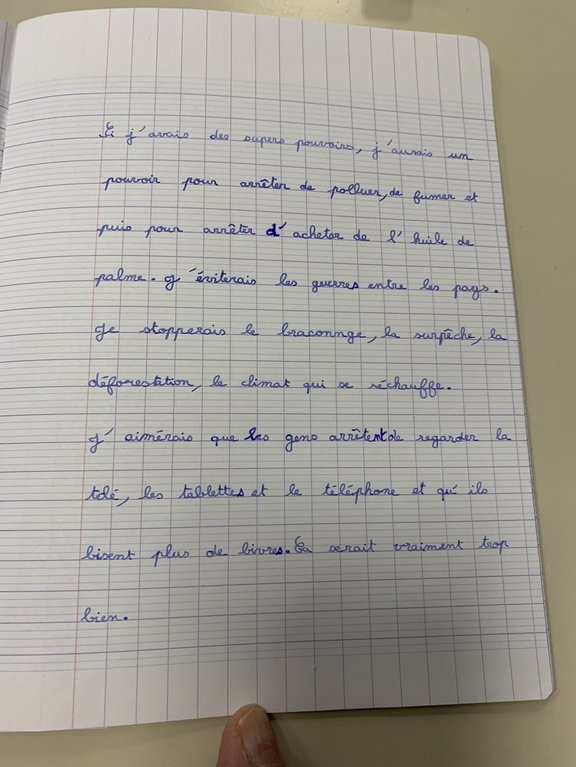 Si j'avais des supers pouvoirs, j'aurais un
pouvoir pour arrêter de polluer, de fumer et
puis pour arrêter d'acheter de l'huile de
palme. J'éviterais les guerres entre les pays.
Je stopperais le braconnge, la surpêche, la
déforestation, le climat qui se réchauffe.
J'aimérais que les gens arrêtent de regarder la
télé, les tablettes et le téléphone et qu'ils
lisent plus de livres. Ça serait vraiment trop
bien.